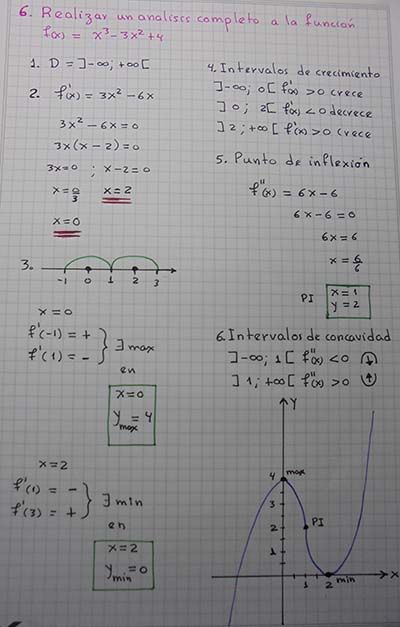 6. Realizar un analisis completo a la función
f(x) = x³-3x²+4
1. D = ]-∞; +∞[
2. f'(x) = 3x² - 6x
3x² - 6x = 0
3x(x - 2) = 0
3x = 0 ; x - 2 = 0
x = 0/3 x = 2
x = 0
3.
-1 0 1 2 3
x = 0
f'(-1) = +
f'(1) = -
∃ max
en
x = 0
y max = 4
x = 2
f'(1) = -
f'(3) = +
∃ min
en
x = 2
y min = 0
4. Intervalos de crecimiento
]-∞; 0[ f'(x) > 0 crece
]0; 2[ f'(x) < 0 decrece
]2; +∞[ f'(x) > 0 crece
5. Punto de inflexión
f''(x) = 6x - 6
6x - 6 = 0
6x = 6
x = 6/6
PI x = 1
y = 2
6. Intervalos de concavidad
]-∞; 1[ f''(x) < 0
]1; +∞[ f''(x) > 0
Y
4 max
3
2 PI
1
1 2 min X